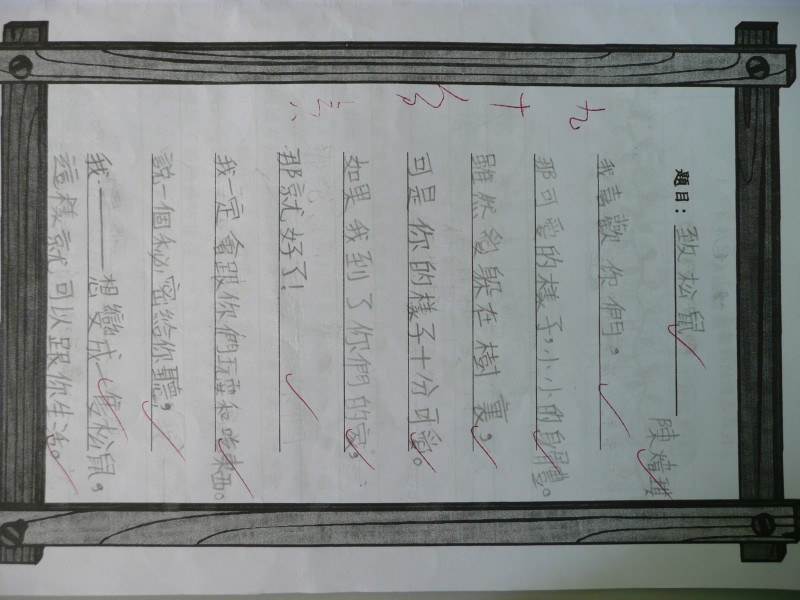 題目：致松鼠
陳
我喜歡你們，
那可愛的樣子，小小的身體。
雖然愛躲在樹裏，
可是你的樣子十分可愛。
如果我到了你們的家，
那就好了！
我一定會跟你們玩耍和吃東西。
說一個秘密給你聽，
我——想變成一隻松鼠，
這樣就可以跟你生活。